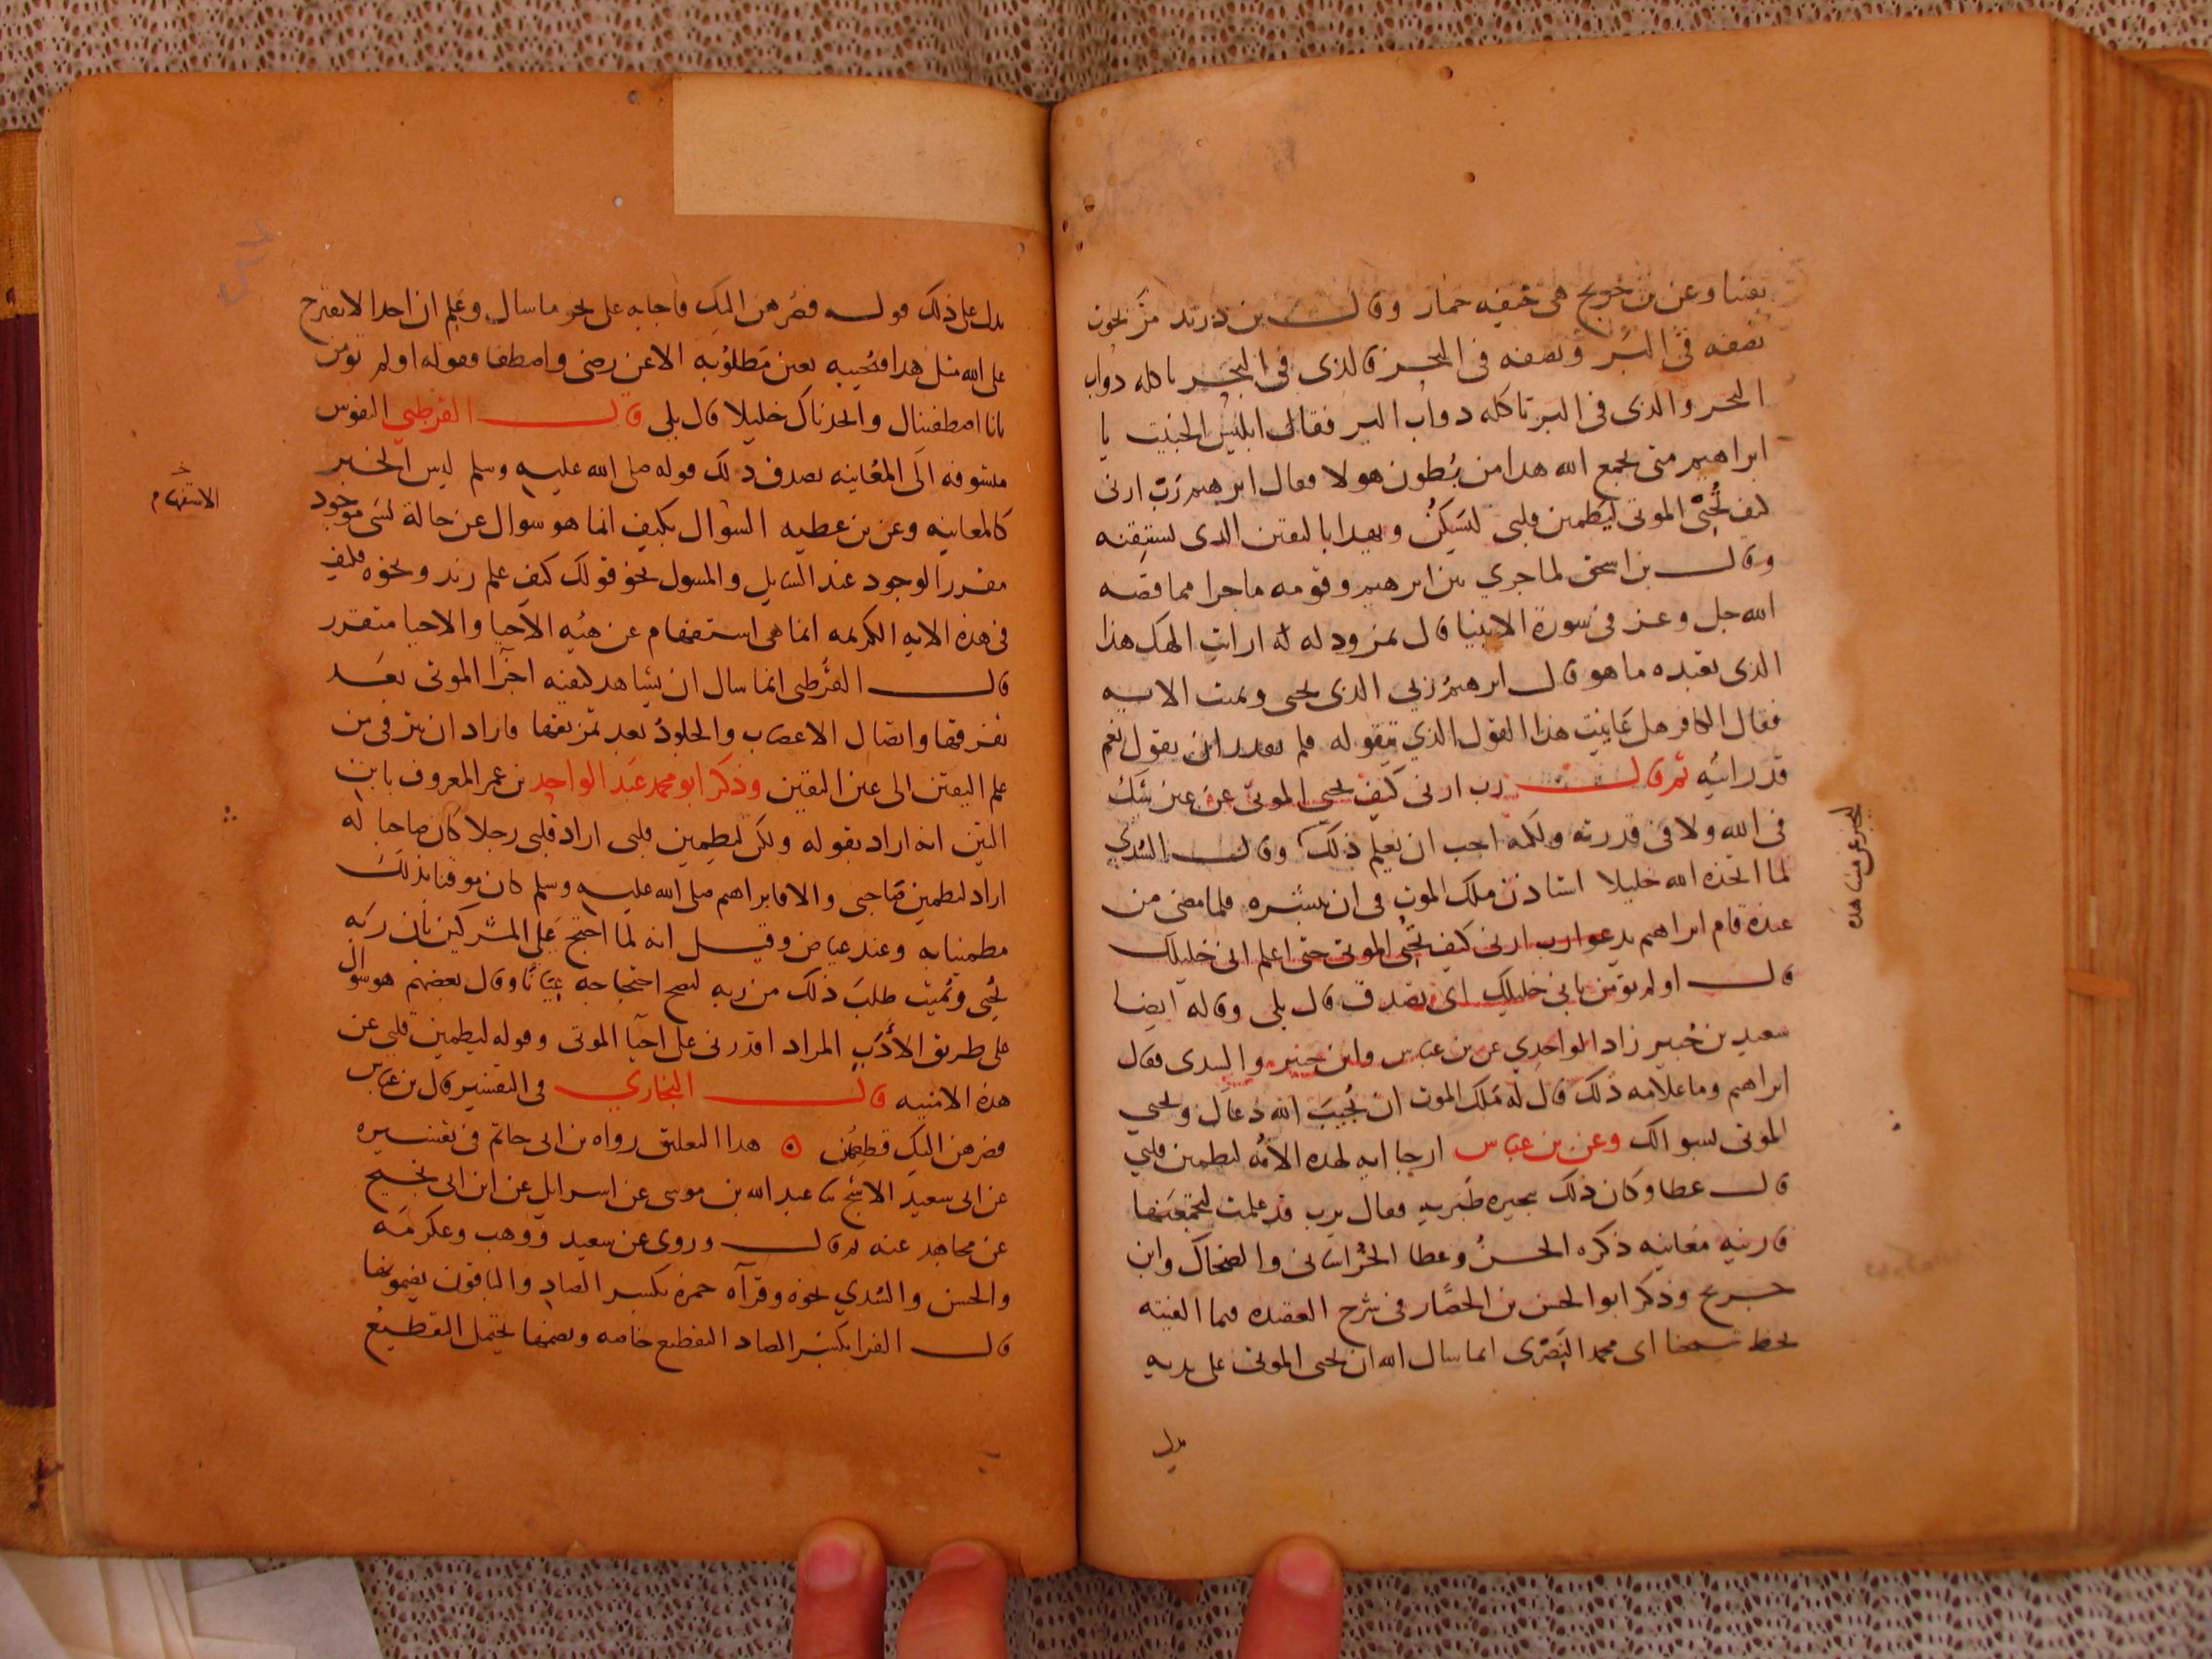 يقينا وعن بن جريج هى جيفه حمار وقال بن دريد مر بحوت
نصفه فى البر ونصفه فى البحر فالذى فى البحر تاكله دواب
البحر والذى فى البر تاكله دواب البر فقال ابليس الخبيث يا
ابراهيم متى يجمع الله هدا من بطون هولا فقال ابرهيم رب ارنى
كيف تحيى الموتى ليطمين قلبى ليسكن ويهدا باليقين الدى يستيقنه
وقال بن اسحق لما جرى بين ابرهيم وقومه ما جرا مما قصه
الله جل وعز فى سورة الانبيا قال نمرود له ارايت الهك هذا
الذى تعبده ما هو قال ابرهيم ربي الذى يحيى ويميت الايه
فقال الكافر هل عاينت هذا القول الذي تقوله فلم يقدر ان يقول نعم
قد رايته ثم قال رب ارنى كيف تحيى الموتى عن غير شك
فى الله ولا فى قدرته ولكنه احب ان يعلم ذلك وقال السدي
لما اتخذه الله خليلا استاذن ملك الموت فى ان يبشره فلما مضى من
عنده قام ابراهيم يدعوا رب ارنى كيف تحيى الموتى حتى اعلم انى خليلك
قال اولم تومن بانى خليلك اى تصدق قال بلى وقاله ايضا
سعيد بن جبير زاد الواحدي عن بن عباس وابن جبير والسدى فقال
ابراهيم وما علامه ذلك قال له ملك الموت ان يجيب الله دعاك ويحيى
الموتى بسوالك وعن بن عباس ارجا ايه لهذه الامه ليطمين قلبي
قال عطا وكان ذلك ببحيره طبريه فقال يرب قد علمت لتجمعنها
فارنيه معاينه ذكره الحسن وعطا الخراسانى والضحاك وابن
جريج وذكر ابو الحسن بن الحصار فى شرح العقيده فيما الفيته
بخط شيخنا ابى محمد البصرى انما سال الله ان يحيى الموتى على يديه
يدل
الخبر عن مشاهده
يدل على ذلك قوله فصرهن اليك فاجابه على نحو ما سال وعلم ان احدا لا يقترح
على الله مثل هدا فيجيبه بعين مطلوبه الا عن رضى واصطفا فقوله اولم تومن
بانا اصطفيناك واتخدناك خليلا قال بلى قال القرطبي النفوس
متشوفه الى المعاينه يصدق ذلك قوله صلى الله عليه وسلم ليس الخبر
كالمعاينه وعن بن عطيه السوال بكيف انما هو سوال عن حالة شى موجود
مقرر الوجود عند السايل والمسول نحو قولك كيف علم زيد ونحوه فكيف
فى هذه الايه الكريمه انما هى استفهام عن هيئه الاحيا والاحيا متقرر
قال القرطبى انما سال ان يشاهد كيفيه اجزا الموتى بعد
تفرقها واتصال الاعصاب والجلود بعد تمزيقها فاراد ان يترقى من
علم اليقين الى عين اليقين وذكر ابو محمد عبد الواحد بن عمر المعروف بابن
التين انه اراد بقوله ولكن ليطمين قلبى اراد قلبى رجلا كان صاحبا له
اراد ليطمين صاحبى والا فابراهيم صلى الله عليه وسلم كان موقنا بذلك
مطمينا به وعند عياض وقيل انه لما احتج على المشركين بان ربه
يحيى ويميت طلب ذلك من ربه ليصح احتجاجه عيانا وقال بعضهم هو سوال
على طريق الادب المراد اقدرنى على احيا الموتى وقوله ليطمين قلبى عن
هذه الامنيه قال البخاري فى التفسير قال بن عباس
فصرهن اليك قطعهن ه هدا التعليق رواه بن ابى حاتم فى تفسيره
عن ابى سعيد الاشج ثنا عبد الله بن موسى عن اسرايل عن ابن ابى نجيح
عن مجاهد عنه ثم قال وروى عن سعيد ووهب وعكرمه
والحسن والسدي نحوه وقرآه حمزه بكسر الصاد والباقون بضمونها
قال الفرا بكسر الصاد التقطيع خاصه وبضمها يحتمل التقطيع
الاستفهام